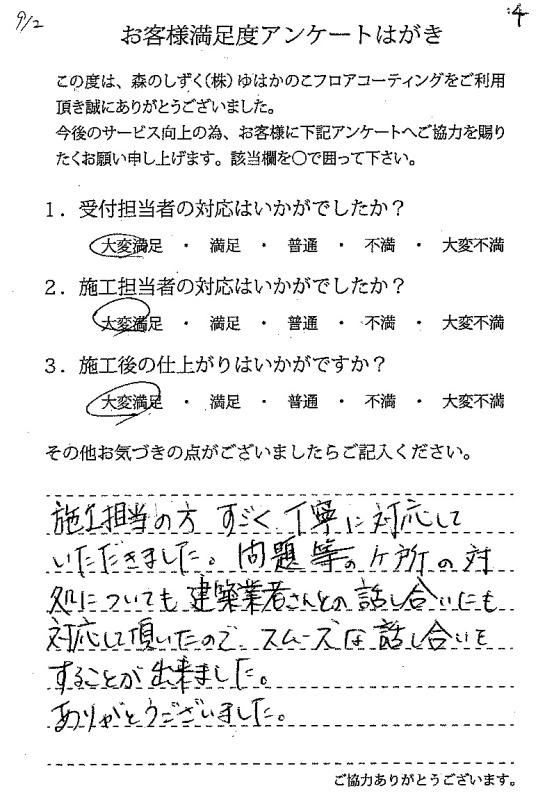 9/2
:4
お客様満足度アンケートはがき
この度は、森のしずく(株)ゆはかのこフロアコーティングをご利用
頂き誠にありがとうございました。
今後のサービス向上の為、お客様に下記アンケートへご協力を賜り
たくお願い申し上げます。該当欄を〇で囲って下さい。
1．受付担当者の対応はいかがでしたか？
大変満足 ・ 満足 ・ 普通 ・ 不満 ・ 大変不満
2．施工担当者の対応はいかがでしたか？
大変満足 ・ 満足 ・ 普通 ・ 不満 ・ 大変不満
3．施工後の仕上がりはいかがですか？
大変満足 ・ 満足 ・ 普通 ・ 不満 ・ 大変不満
その他お気づきの点がございましたらご記入ください。
施工担当の方 すごく 丁寧に対応して
いただきました。問題等のケ所の対
処についても建築業者さんとの話し合いにも
対応して頂いたので、スムーズな話し合いを
することが出来ました。
ありがとうございました。
ご協力ありがとうございます。